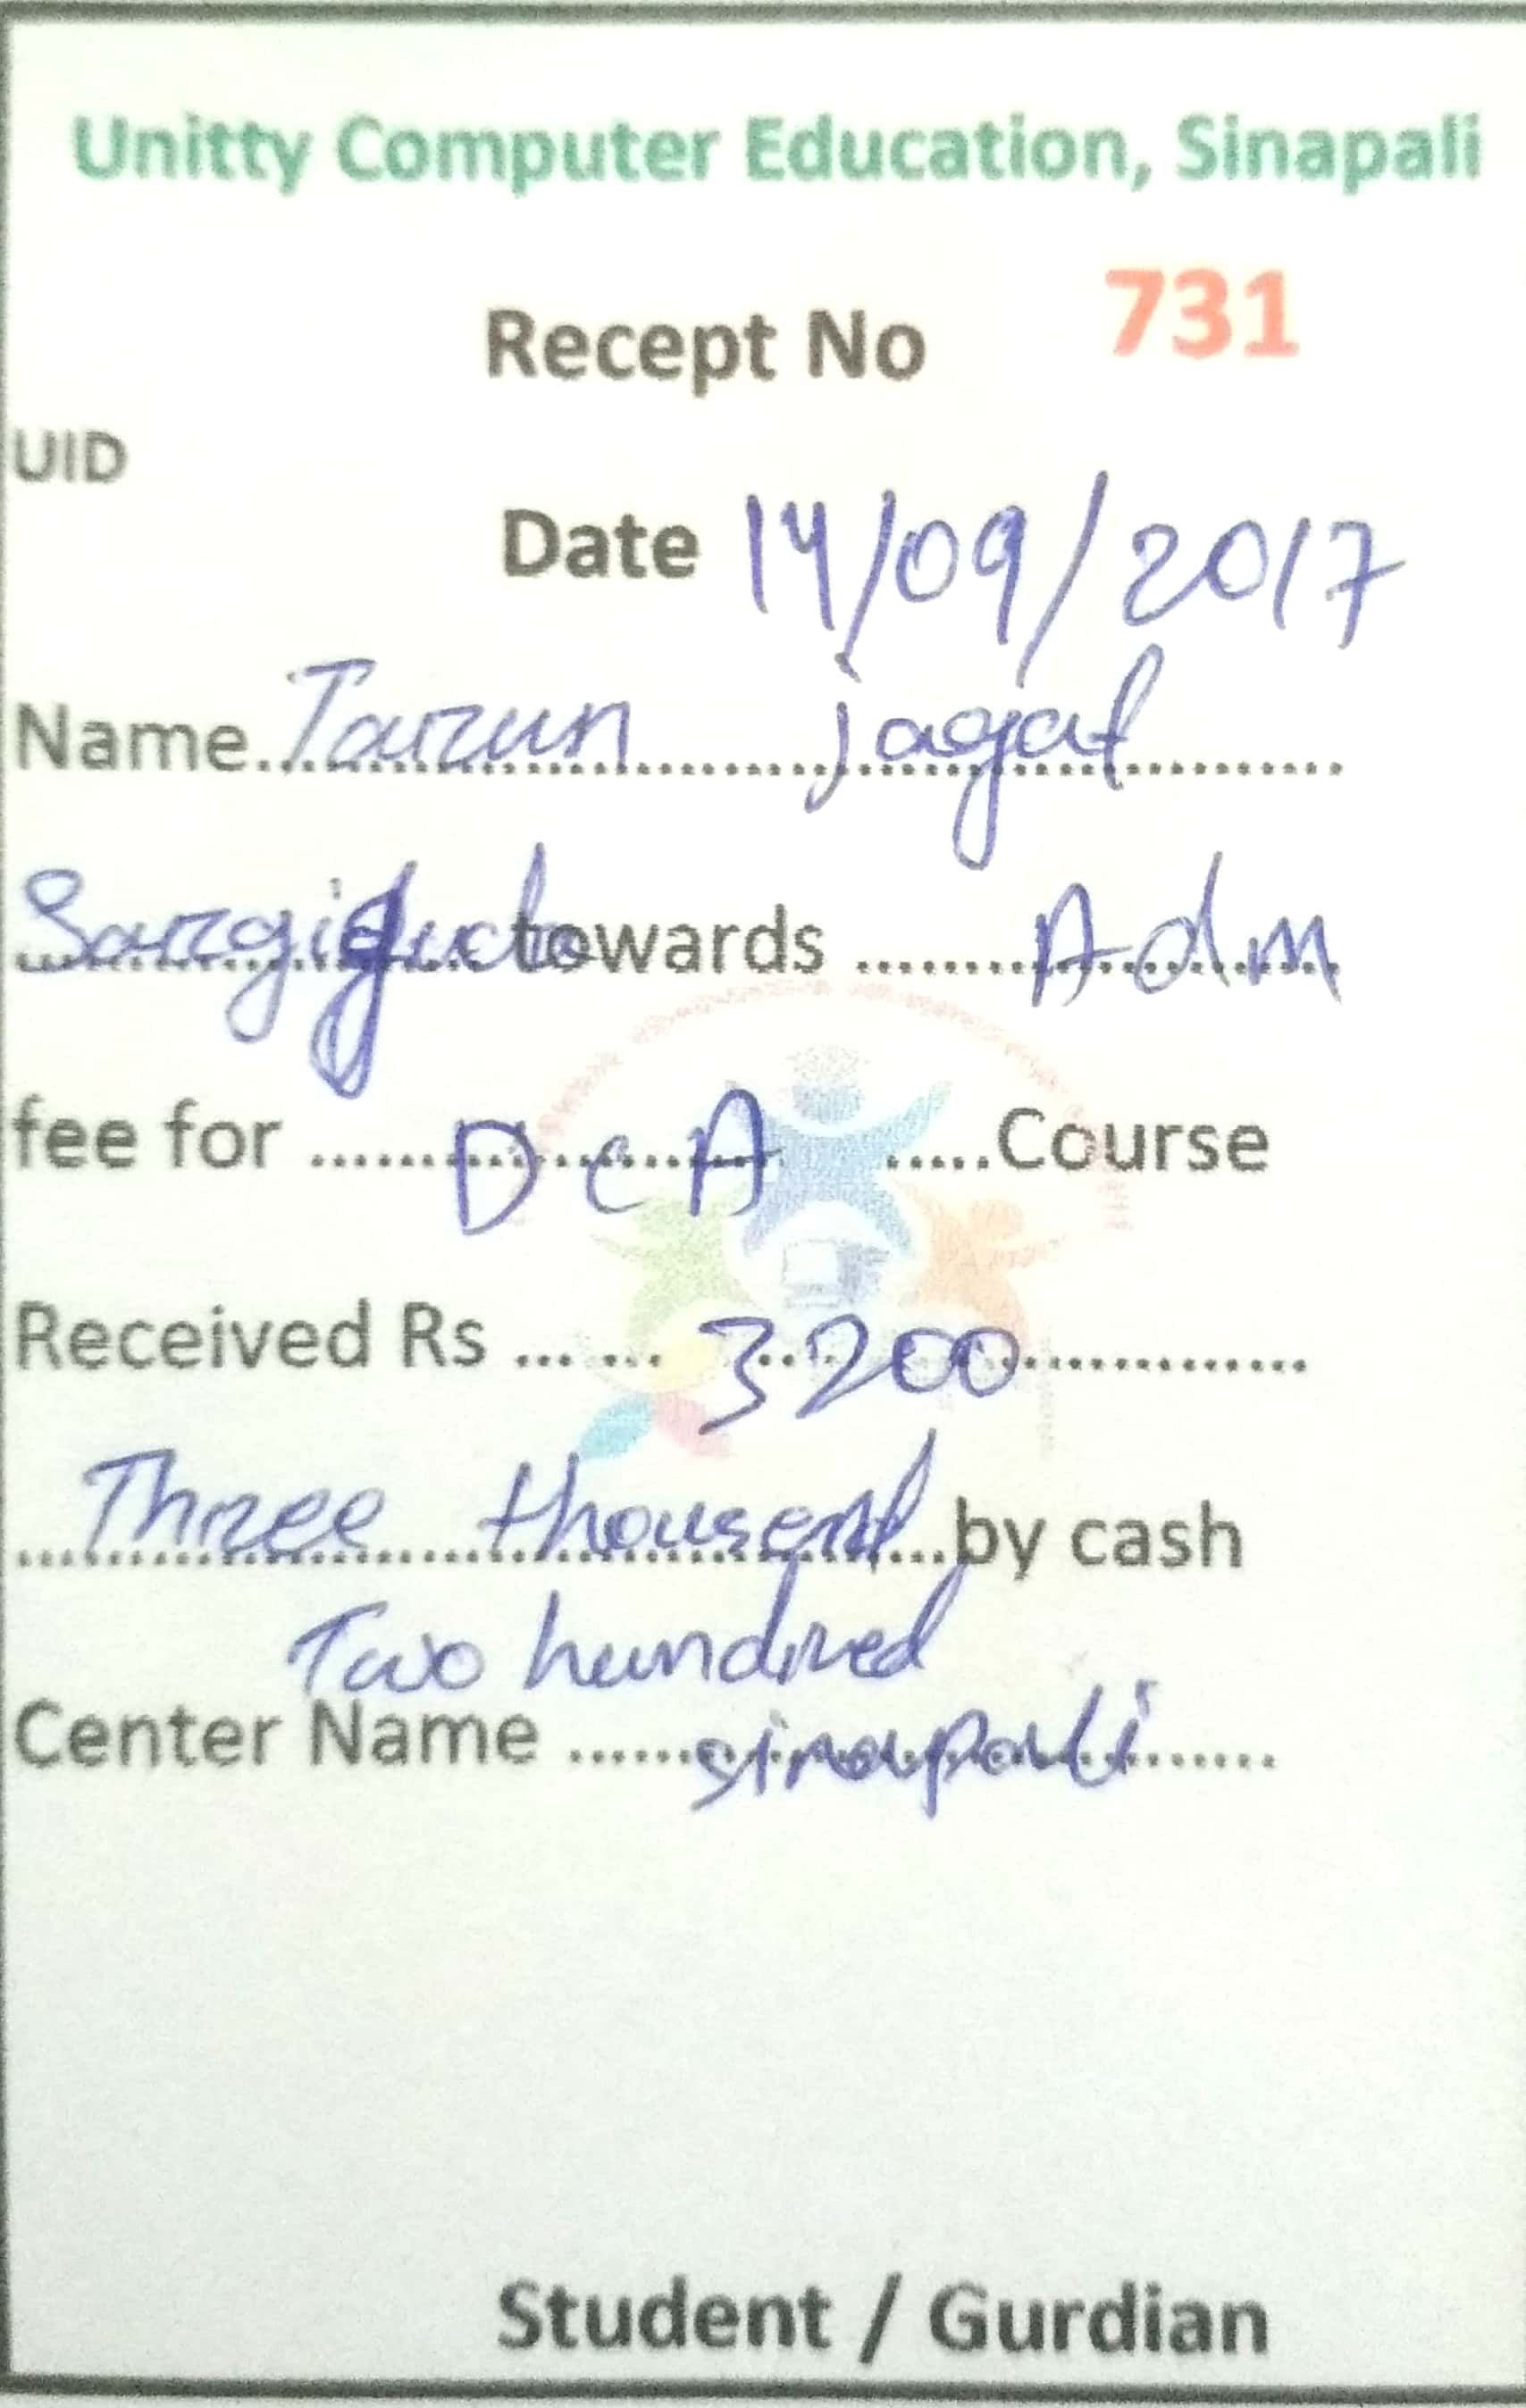 Unitty Computer Education, Sinapali
Recept No 731
UID
Date 14/09/2017
Name Tarun jagat
Sargiguda towards Adm
fee for DCA Course
Received Rs 3200
Three thousend by cash
Two hundred
Center Name sinapali
Student / Gurdian